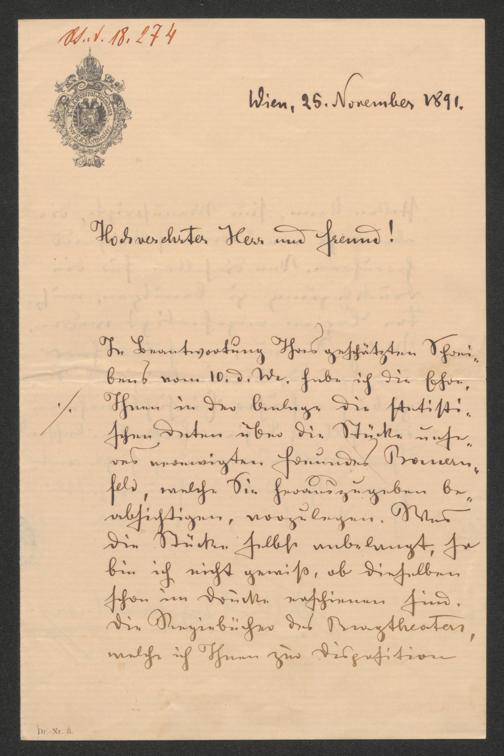 18.274
Wien, 25. November 1891.
Hochverehrter Herr und Freund!
In Beantwortung Ihres geschätzten Schrei-
bens vom 10. d. Mts. habe ich die Ehre,
./.
Ihnen in der Beilage die statisti-
schen Daten über die Stücke unse-
res verewigten Freundes Bauern-
feld, welche Sie herauszugeben be-
absichtigen, vorzulegen. Was
die Stücke selbst anbelangt, so
bin ich nicht gewiß, ob dieselben
schon im Drucke erschienen sind.
Die Regiebücher des Burgtheaters,
welche ich Ihnen zur Disposition
Dr.-Nr. 8.